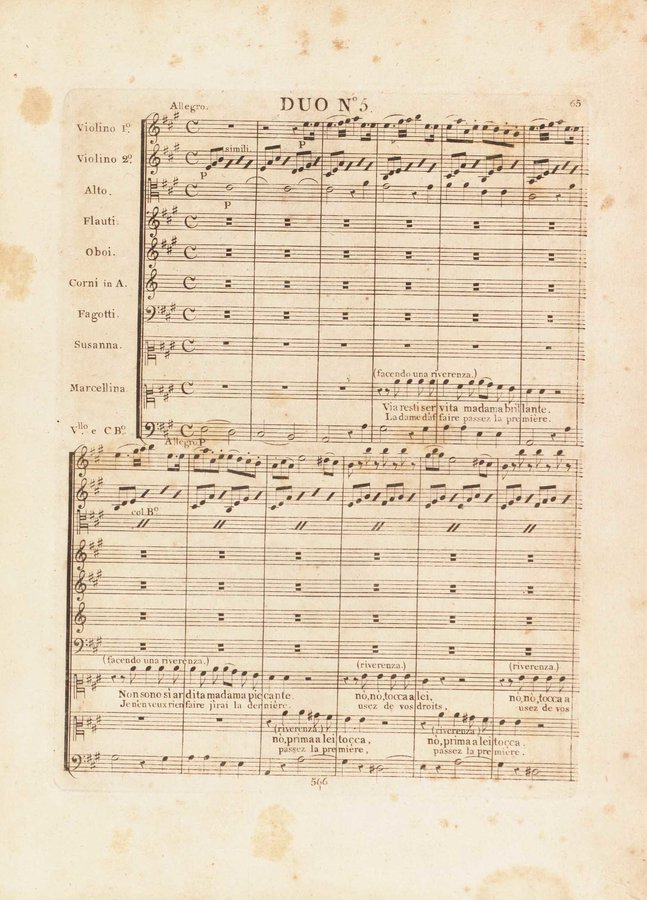 Allegro. DUO Nº 5. 65
Violino 1º.
Violino 2º. simili.
P
P
Alto.
P
Flauti.
Oboi.
Corni in A.
Fagotti.
Susanna.
(facendo una riverenza.)
Marcellina
Via resti servita madama brillante.
La dame d'af faire passez la première.
Vllo. e C Bº.
Allegro. P
col. Bº.
(facendo una riverenza.) (riverenza.) (riverenza.)
Non sono si ar dita madama piccante. nò, nò, tocca a lei, nò, nò, tocca a
Je n'en veux rien faire j'irai la dernière. usez de vos droits, usez de vos
(riverenza.) (riverenza.)
nò, prima a lei tocca, nò, prima a lei tocca.
passez la première, passez la première.
566